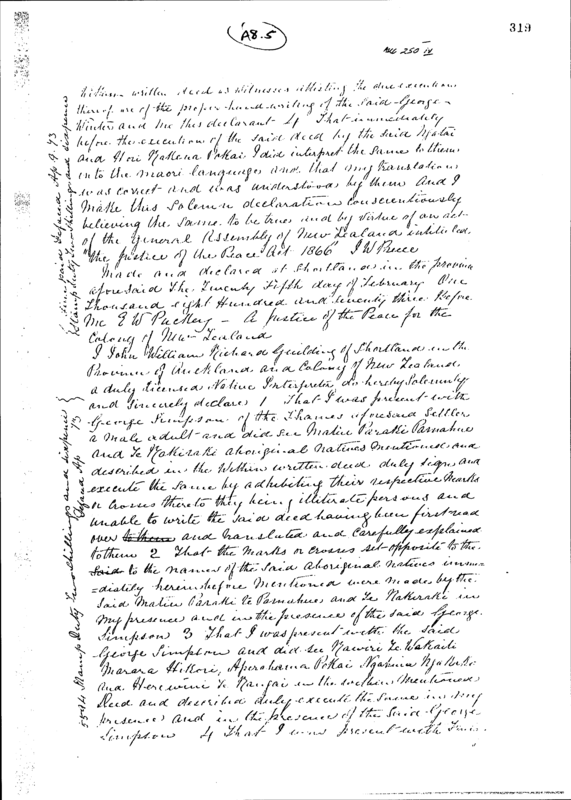 319
A8.5
within written deed as witnesses attesting the due execution
thereof are of the proper hand-writing of the said George
and me this declarant 4 That immediately
before the execution of the said deed by the said
and Hori Pokai I did interpret the same to them
into the maori language and that my translation
was correct and was understood by them And I
make this Solemn declaration conscientiously
believing the same to be true and by virtue of an act
of the General Assembly of New Zealand intituled
"The Justice of the Peace Act 1866"
Made and declared at Shortland in the province
aforesaid The Twenty Fifth day of February One
Thousand eight Hundred and seventy three Before
me E W Puckey - A Justice of the Peace for the
Colony of New Zealand
I John William Richard Guilding of Shortland in the
Province of Auckland and Colony of New Zealand
a duly licensed Native Interpreter do hereby solemnly
and sincerely declare 1 That I was present with
George Simpson of the Thames aforesaid Settler
a male adult and did see Matiu Paraki
and Te aboriginal natives mentioned and
described in the Within written deed duly sign and
execute the same by adhibiting their respective Marks
or crosses thereto they being illiterate persons and
unable to write the said deed having been first read
over to them and translated and carefully explained
to them 2 That the Marks or crosses set opposite to the
said to the names of the said aboriginal natives imme
=diately hereinbefore mentioned were made by the
said Matiu Paraki and Te in
my presence and in the presence of the said George
Simpson 3 That I was present with the said
George Simpson and did see
Pokai
and in the within Mentioned
Deed and described duly execute the same in my
presence and in the presence of the said George
Simpson 4 That I was present with
Stamp duty Two Shillings and sixpence
Stamp Duty Two Shillings and sixpence